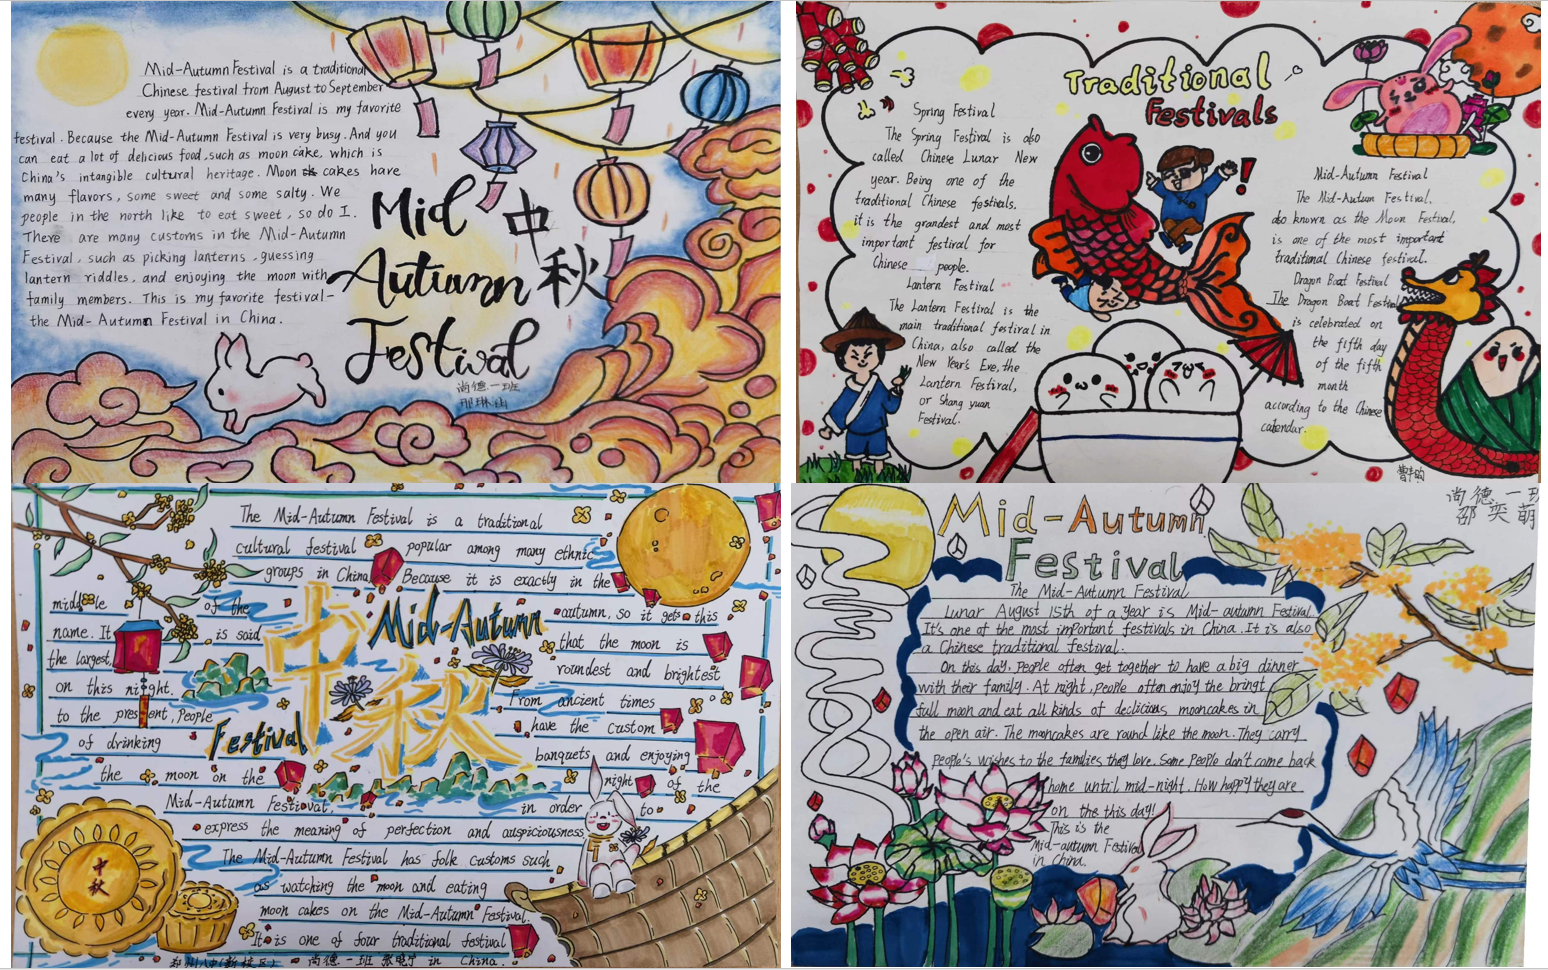 Mid-Autumn Festival is a traditional
Chinese festival from August to September
every year. Mid-Autumn Festival is my favorite
festival. Because the Mid-Autumn Festival is very busy. And you
can eat a lot of delicious food, such as moon cake, which is
China's intangible cultural heritage. Moon cakes have
many flavors, some sweet and some salty. We
people in the north like to eat sweet, so do I.
There are many customs in the Mid-Autumn
Festival, such as picking lanterns, guessing
lantern riddles, and enjoying the moon with
family members. This is my favorite festival-
the Mid-Autumn Festival in China.
Mid
Autumn
Festival
中
秋
尚德一班
Traditional
Festivals
Spring Festival
The Spring Festival is also
called Chinese Lunar New
year. Being one of the
traditional Chinese festivals.
it is the grandest and most
important festival for
Chinese people.
Lantern Festival
The Lantern Festival is the
main traditional festival in
China, also called the
New Year's Eve, the
Lantern Festival,
or Shang yuan
Festival.
!
Mid-Autumn Festival
The Mid-Autumn Festival,
also known as the Moon Festival,
is one of the most important
traditional Chinese festival.
Dragon Boat Festival
The Dragon Boat Festival
is celebrated on
the fifth day
of the fifth
month
according to the Chinese
calendar.
The Mid-Autumn Festival is a traditional
cultural festival popular among many ethnic
groups in China. Because it is exactly in the
middle of the autumn, so it gets this
name. It is said that the moon is
the largest, roundest and brightest
on this night. From ancient times
to the present, People have the custom
of drinking banquets and enjoying
the moon on the night of the
Mid-Autumn Festival, in order to
express the meaning of perfection and auspiciousness
The Mid-Autumn Festival has folk customs such
as watching the moon and eating
moon cakes on the Mid-Autumn Festival.
It is one of four traditional festival
尚德一班 in China.
Mid-Autumn
Festival
中秋
中
秋
Mid-Autumn
Festival
尚德一班
邵奕萌
The Mid-Autumn Festival
Lunar August 15th of a year is Mid-autumn Festival.
It's one of the most important festivals in China. It is also
a Chinese traditional festival.
On this day, people often get together to have a big dinner
with their family. At night, people often enjoy the bringt
full moon and eat all kinds of declicious mooncakes in
the open air. The mooncakes are round like the moon. They carry
people's wishes to the families they love. Some People don't come back
home until mid-night. How happy they are
on the this day!
This is the
Mid-autumn Festival
in China.